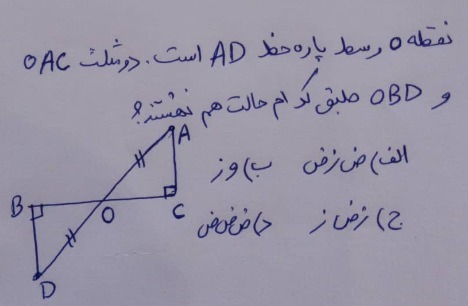 نقطه O وسط پاره خط AD است. دو مثلث OAC
و OBD طبق کدام حالت هم نهشتند؟
الف) ض ز ض ب) و ز
ج) ز ض ز د) ض ض ض
A
B
O
C
D